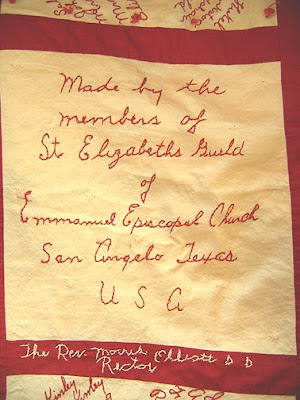 Made by the
members of
St Elizabeths Guild
of
Emmanuel Episcopal Church
San Angelo Texas
U S A
The Rev. Morris Elliott D D
Rector